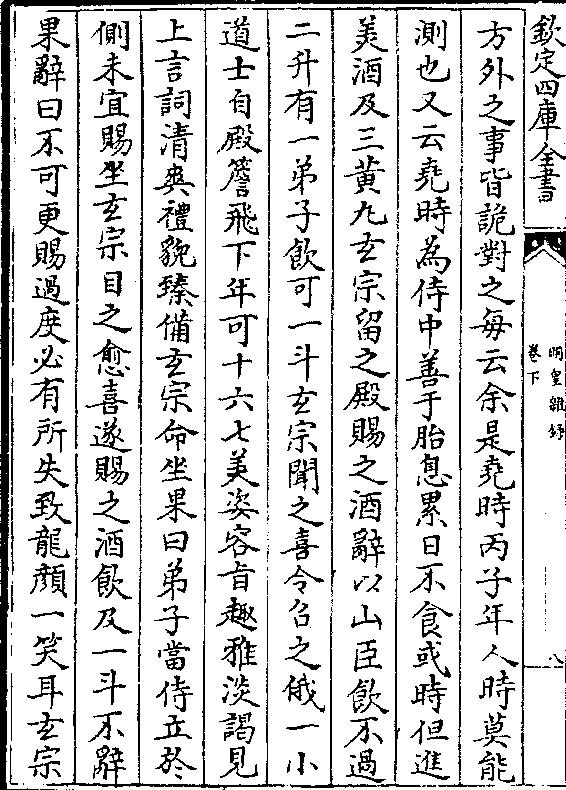 欽定四庫全書
明皇雜錄
卷下
八
方外之事皆詭對之每云余是堯時丙子年人時莫能
測也又云堯時為侍中善于胎息累日不食或時但進
美酒及三黃丸玄宗留之殿賜之酒辭以山臣飲不過
二升有一弟子飲可一斗玄宗聞之喜令召之俄一小
道士自殿簷飛下年可十六七美姿容旨趣雅淡謁見
上言詞清爽禮貌臻備玄宗命坐果曰弟子當侍立於
側未宜賜坐玄宗目之愈喜遂賜之酒飲及一斗不辭
果辭曰不可更賜過度必有所失致龍顏一笑耳玄宗